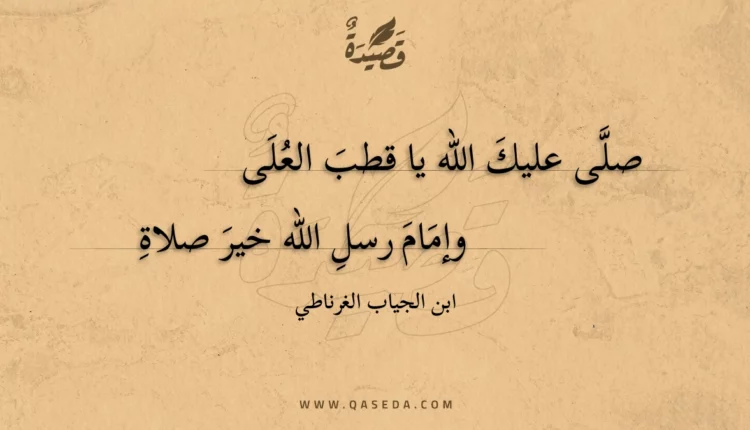 قَصِيدَةٌ
صلَّى عليكَ الله يا قطبَ العُلَى
وإمَامَ رسلِ الله خيرَ صلاةِ
ابن الجياب الغرناطي
WWW.QASEDA.COM